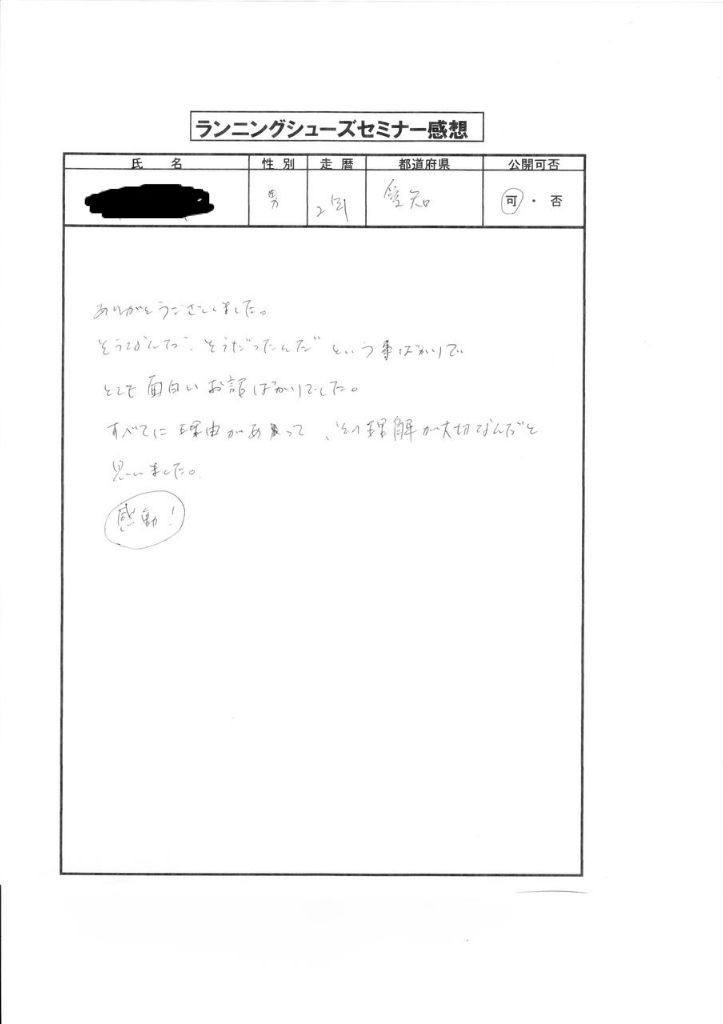 ランニングシューズセミナー感想
氏名 性別 走暦 都道府県 公開可否
男 愛知 可・否
ありがとうございました。
そうなんだ、そうだったんだ という事ばかりで
とても面白いお話ばかりでした。
すべてに理由があって、その理解が大切なんだと
思いました。
感動!